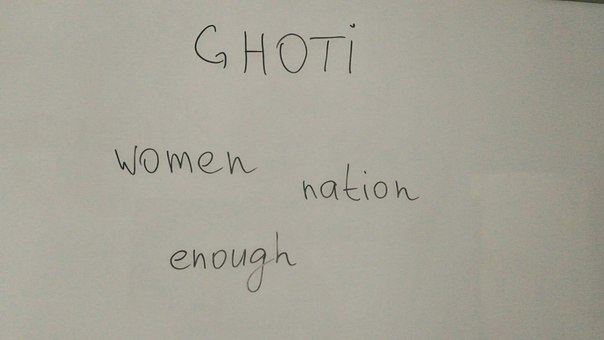 GHOTi
women
nation
enough